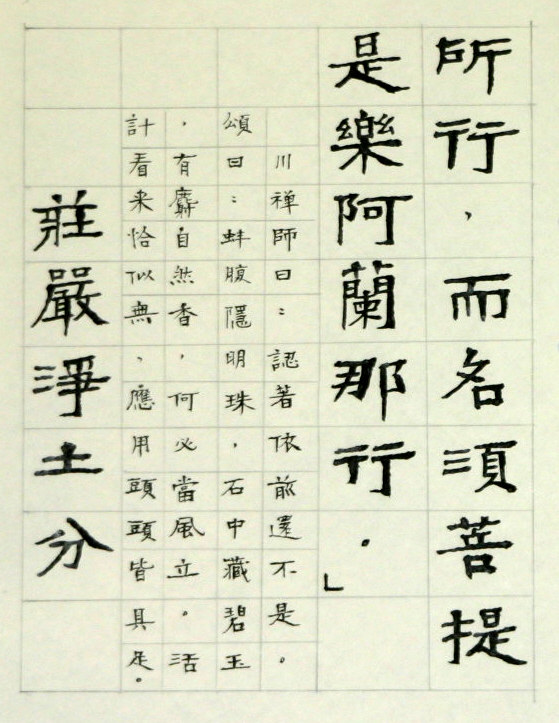 所行，而名須菩提
是樂阿蘭那行。」
川禅師曰：認著依前還不是。
頌曰：蚌腹隱明珠，石中藏碧玉
，有麝自然香，何必當風立。活
計看来恰似無，應用頭頭皆具足。
莊嚴淨土分